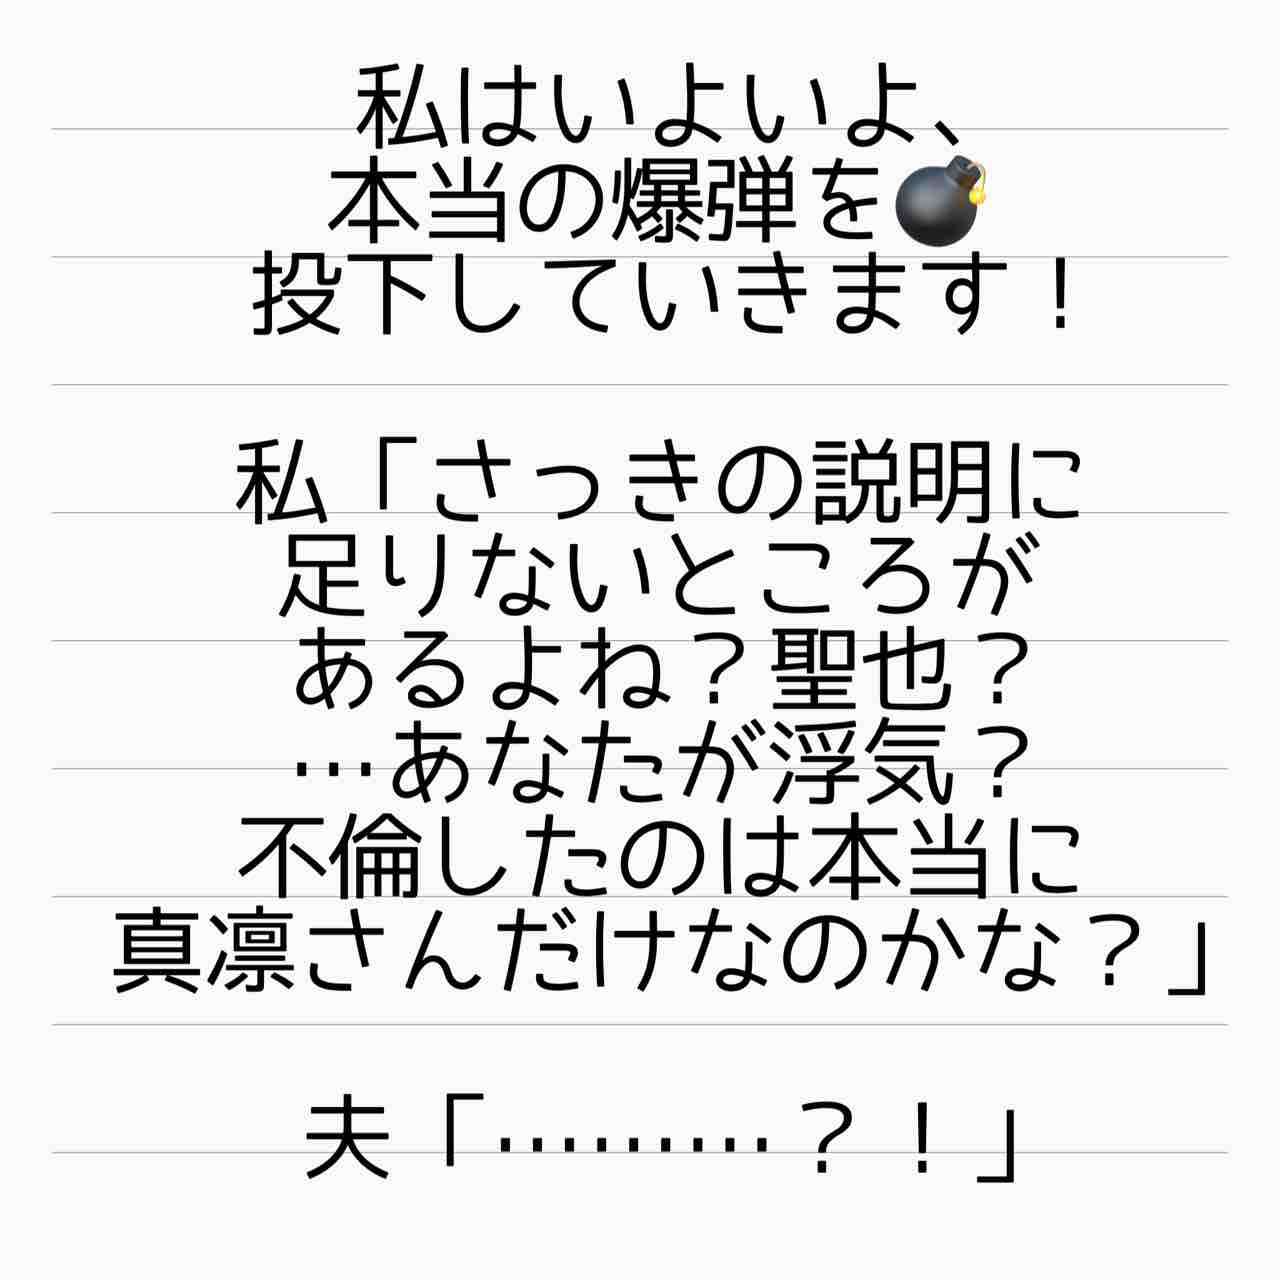 私はいよいよ、
本当の爆弾を💣
投下していきます！
私「さっきの説明に
足りないところが
あるよね？聖也？
…あなたが浮気？
不倫したのは本当に
真凛さんだけなのかな？」
夫「………？！」